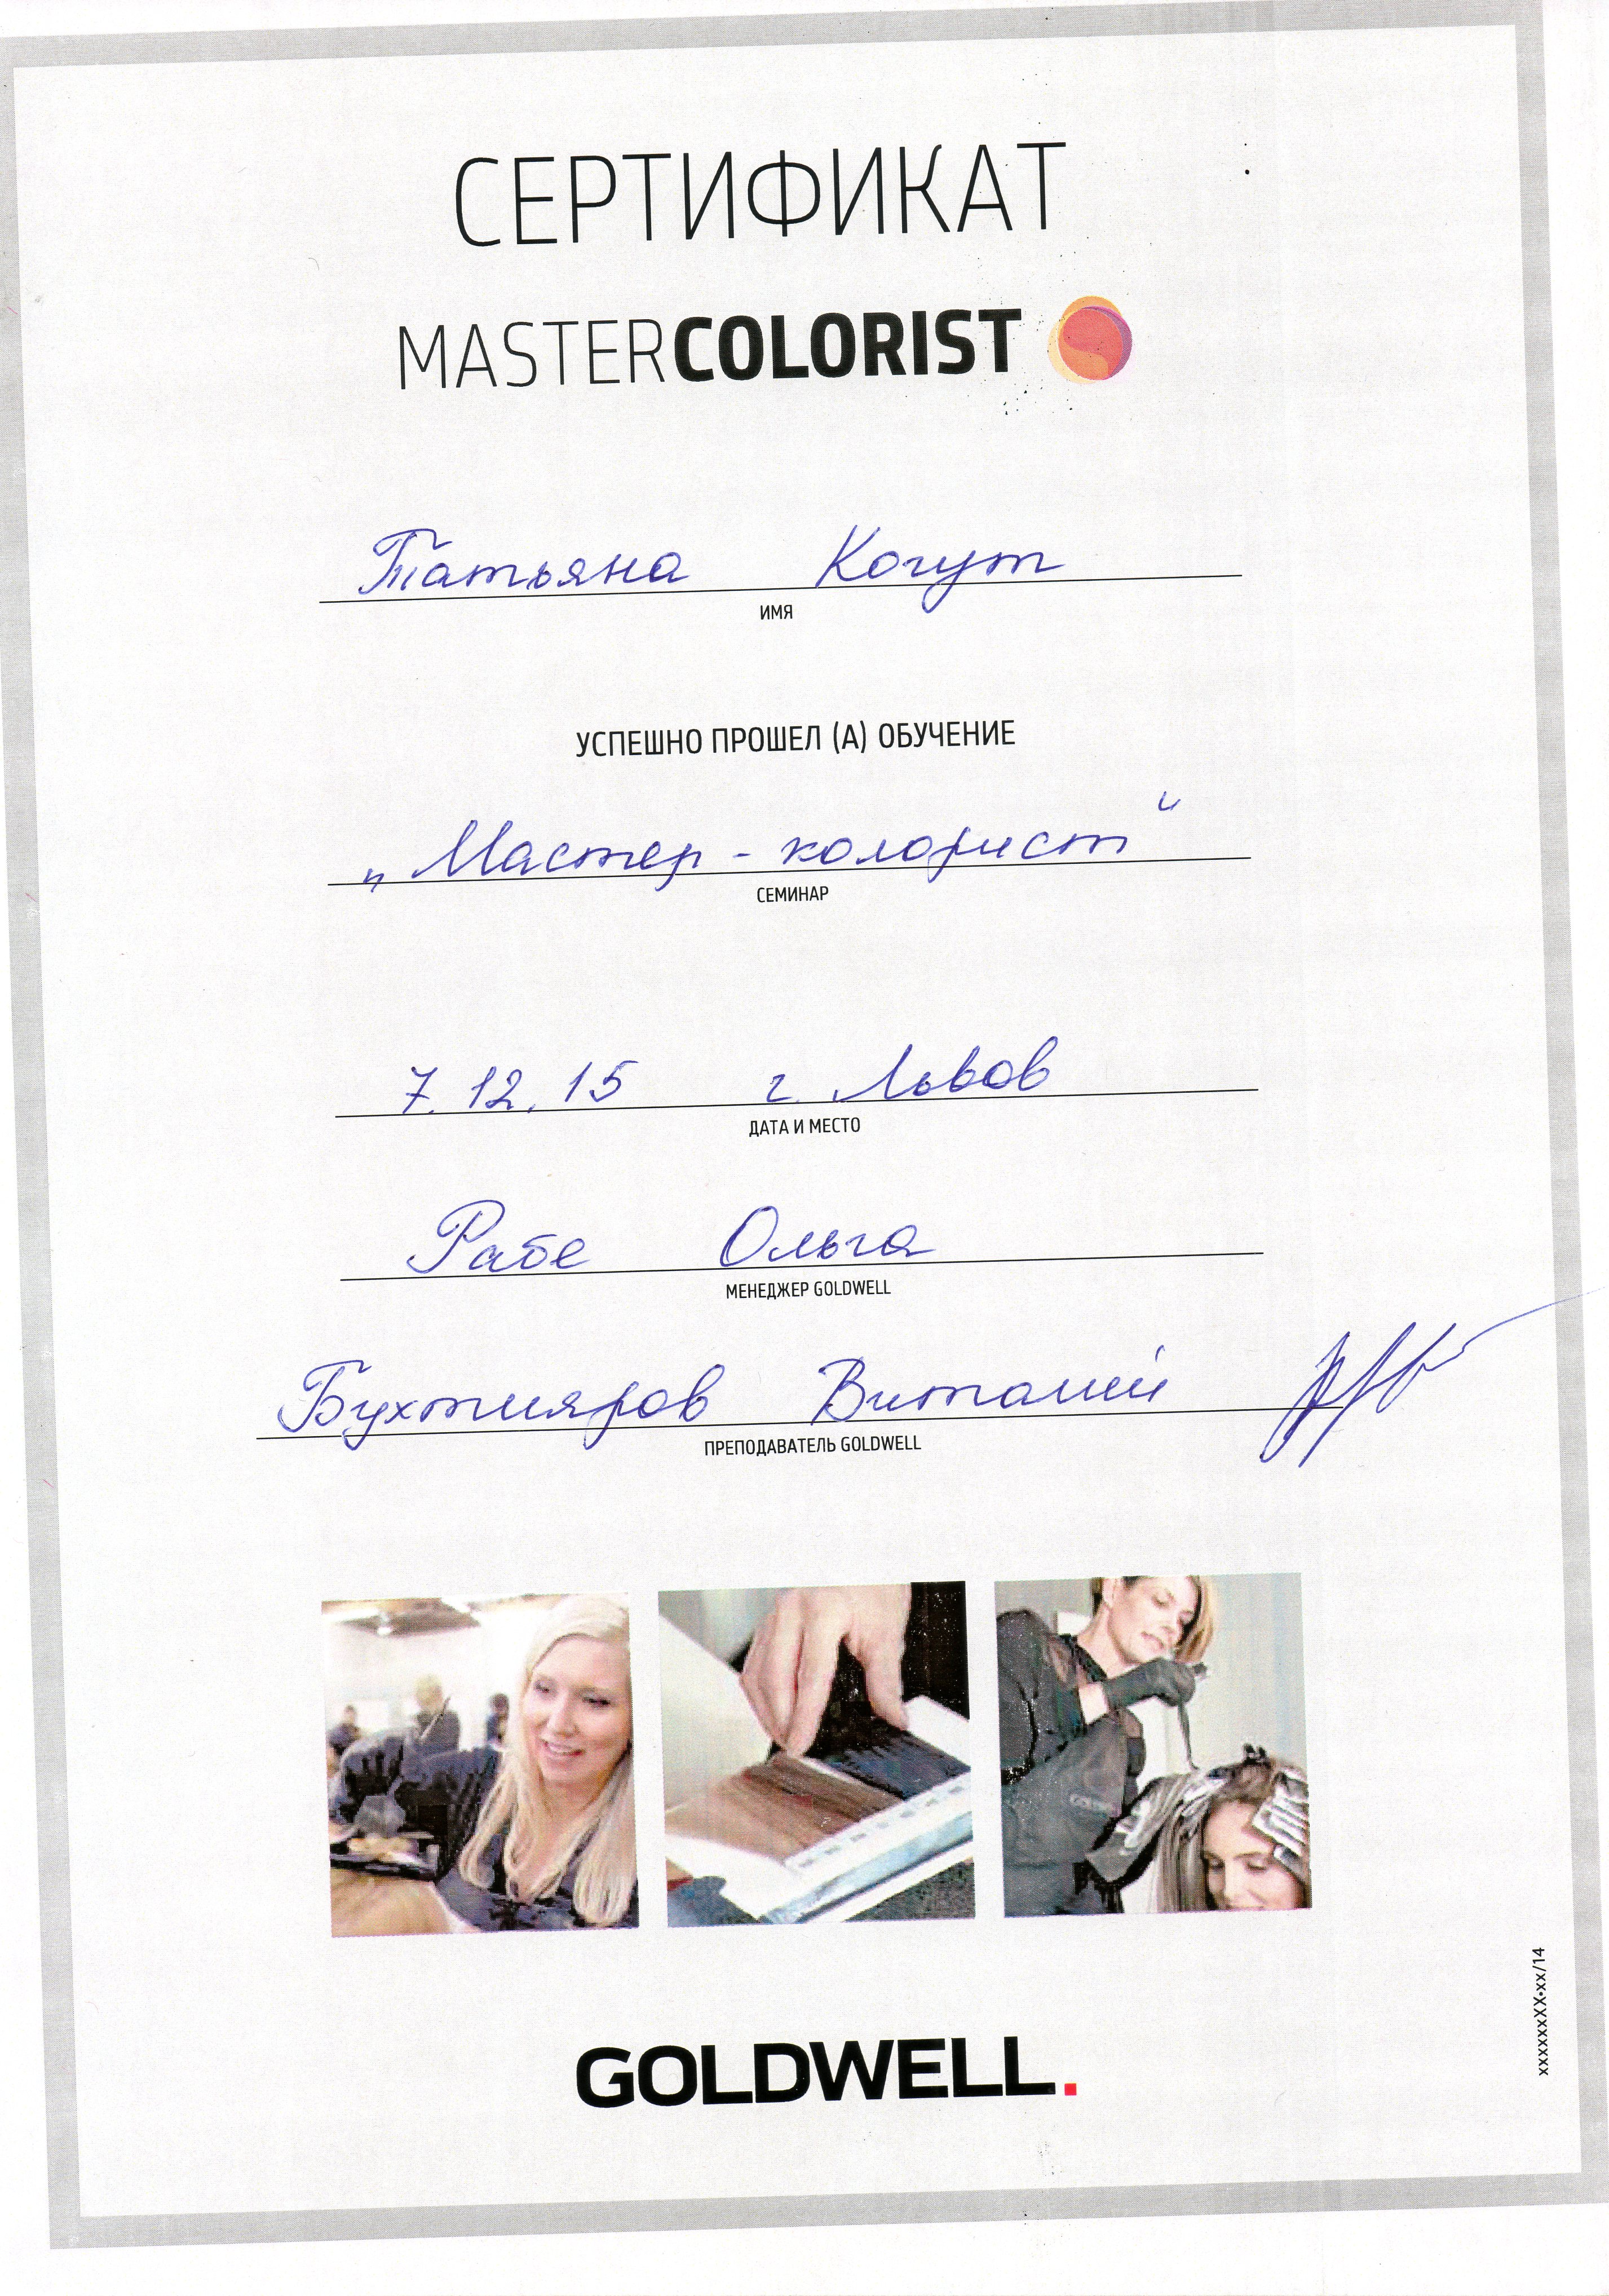 СЕРТИФИКАТ
MASTERCOLORIST
Татьяна Когут
ИМЯ
УСПЕШНО ПРОШЕЛ (А) ОБУЧЕНИЕ
„Мастер - колорист“
СЕМИНАР
7.12.15 г. Львов
ДАТА И МЕСТО
Рабе Ольга
МЕНЕДЖЕР GOLDWELL
Бухтияров Виталий
ПРЕПОДАВАТЕЛЬ GOLDWELL
GOLDWELL.
xxxxxxXX•xx/14